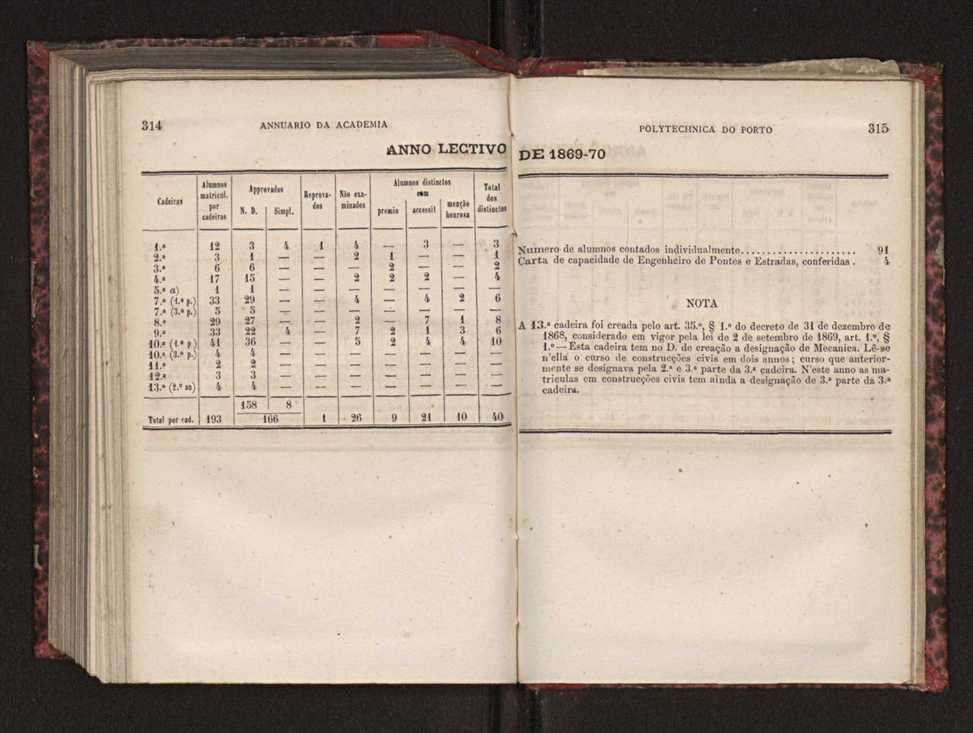 314
ANNUARIO DA ACADEMIA
ANNO LECTIVO
Cadeiras | Alumnos matricul. por cadeiras | Approvados N. D. | Simpl. | Reprovados | Não examinados | Alumnos distinctos com premio | accessit | menção honrosa | Total dos distinctos
1.ª 12 3 4 1 4 — 3 — 3
2.ª 3 1 — — 2 1 — — 1
3.ª 6 6 — — — 2 — — 2
4.ª 17 15 — — 2 2 2 — 4
5.ª a) 1 1 — — — — — — —
7.ª (1.ª p.) 33 29 — — 4 — 4 2 6
7.ª (3.ª p.) 5 5 — — — — — — —
8.ª 29 27 — — 2 — 7 1 8
9.ª 33 22 4 — 7 2 1 3 6
10.ª (1.ª p.) 41 36 — — 5 2 4 4 10
10.ª (3.ª p.) 4 4 — — — — — — —
11.ª 2 2 — — — — — — —
12.ª 3 3 — — — — — — —
13.ª (2.º an) 4 4 — — — — — — —
158 8
Total por cad. 193 166 1 26 9 21 10 40
POLYTECHNICA DO PORTO
315
DE 1869-70
Numero de alumnos contados individualmente..................... 91
Carta de capacidade de Engenheiro de Pontes e Estradas, conferidas . 4
NOTA
A 13.ª cadeira foi creada pelo art. 35.º, § 1.º do decreto de 31 de dezembro de
1868, considerado em vigor pela lei de 2 de setembro de 1869, art. 1.º, §
1.º — Esta cadeira tem no D. de creação a designação de Mecanica. Lê-se
n'ella o curso de construcções civis em dois annos; curso que anterior-
mente se designava pela 2.ª e 3.ª parte da 3.ª cadeira. N'este anno as ma-
triculas em construcções civis tem ainda a designação de 3.ª parte da 3.ª
cadeira.